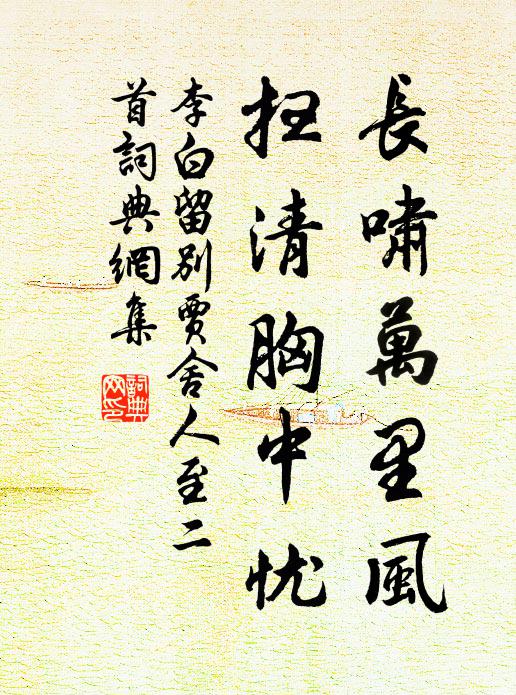 長嘯萬里風
扫清胸中忧
李白留別賈舍人至二
首詞典網集
詞典
网印